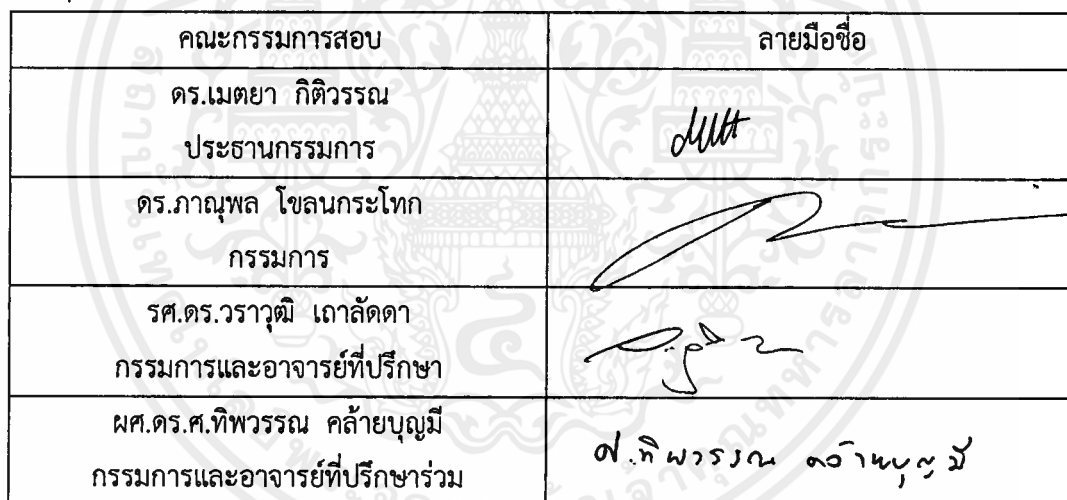 คณะกรรมการสอบ ลายมือชื่อ
ดร.เมตยา กิติวรรณ
ประธานกรรมการ
ดร.ภาณุพล โขลนกระโทก
กรรมการ
รศ.ดร.วราวุฒิ เถาลัดดา
กรรมการและอาจารย์ที่ปรึกษา
ผศ.ดร.ศ.ทิพวรรณ คล้ายบุญมี
กรรมการและอาจารย์ที่ปรึกษาร่วม
ศ.ทิพวรรณ คล้ายบุญมี